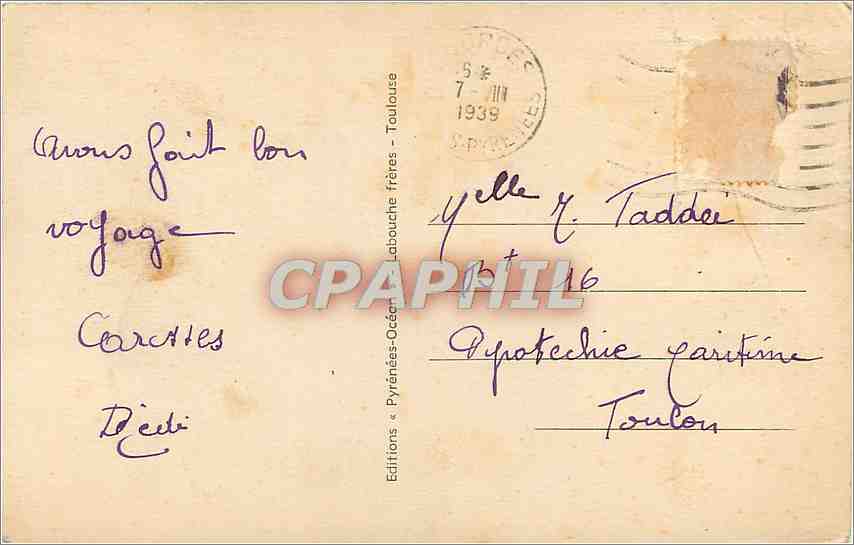 avons fait bon
voyage
Caresses
Dédé
Editions « Pyrénées-Océan » Labouche frères - Toulouse
LOURDES
7 - VIII
1939
S-PYRENEES
Melle M. Taddei
Bt 16
Pyrotechnie Maritime
Toulon
CPAPHIL